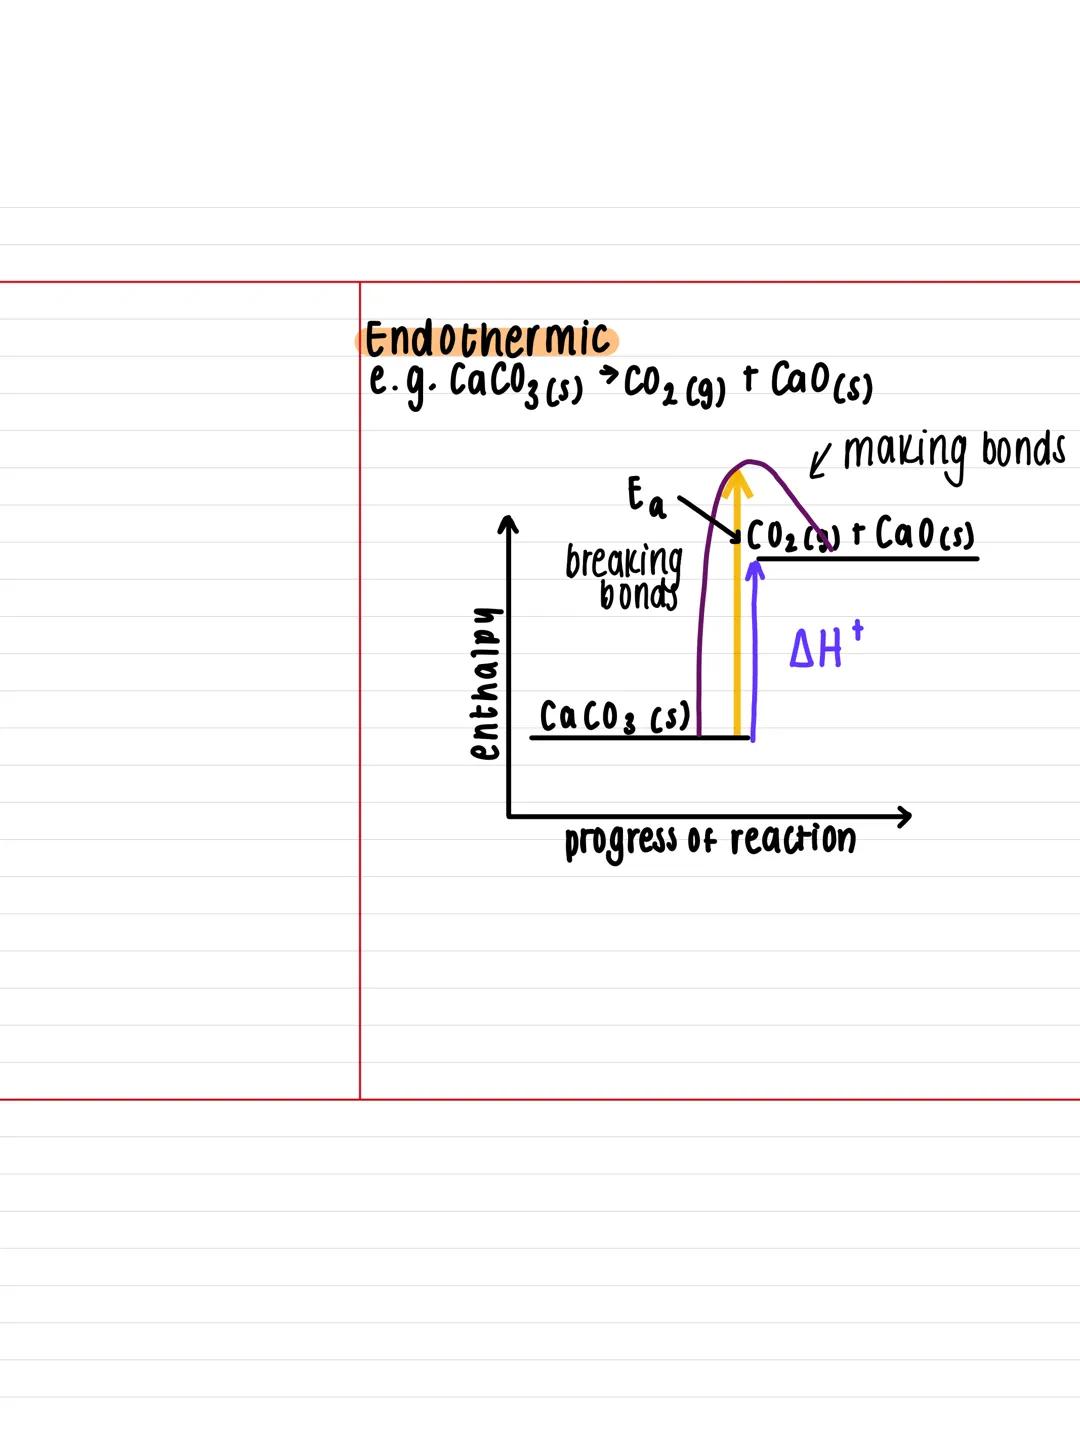 Endothermic
e.g. CaCO₃(s) → CO₂(g) + CaO(s)
making bonds
Ea
CO₂(g) + CaO(s)
breaking
bonds
ΔH⁺
enthalpy
CaCO₃ (s)
progress of reaction